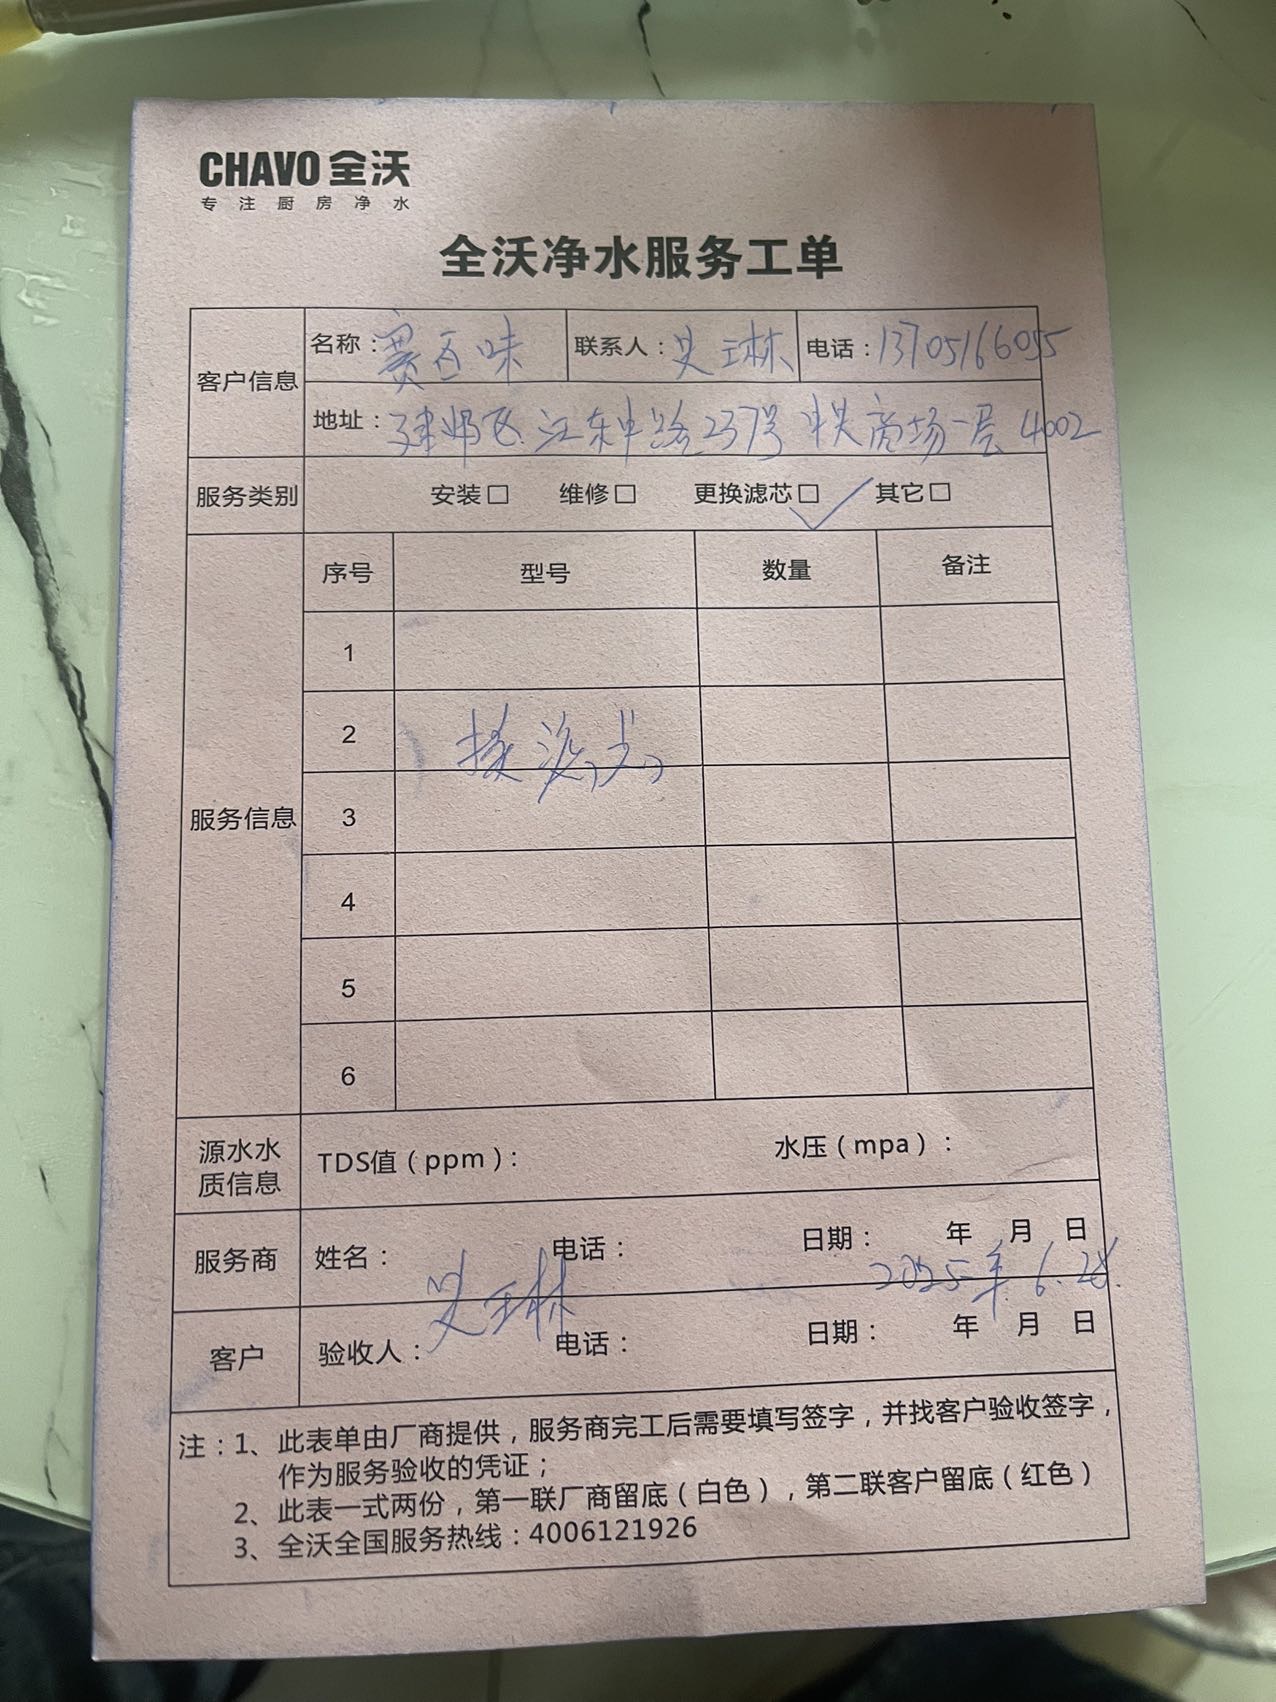 CHAVO 全沃
专注厨房净水
全沃净水服务工单
客户信息
名称：赛百味 联系人：吴玉琳 电话：13705166055
地址：建邺区江东中路237号 中央商场一层 4002
服务类别 安装□ 维修□ 更换滤芯□ ✓ 其它□
服务信息
序号 型号 数量 备注
1
2 换滤芯
3
4
5
6
源水水质信息 TDS值（ppm）： 水压（mpa）：
服务商 姓名： 电话： 日期： 年 月 日
2025年 6.28.
客户 验收人： 电话： 日期： 年 月 日
注：1、此表单由厂商提供，服务商完工后需要填写签字，并找客户验收签字，
作为服务验收的凭证；
2、此表一式两份，第一联厂商留底（白色），第二联客户留底（红色）
3、全沃全国服务热线：4006121926